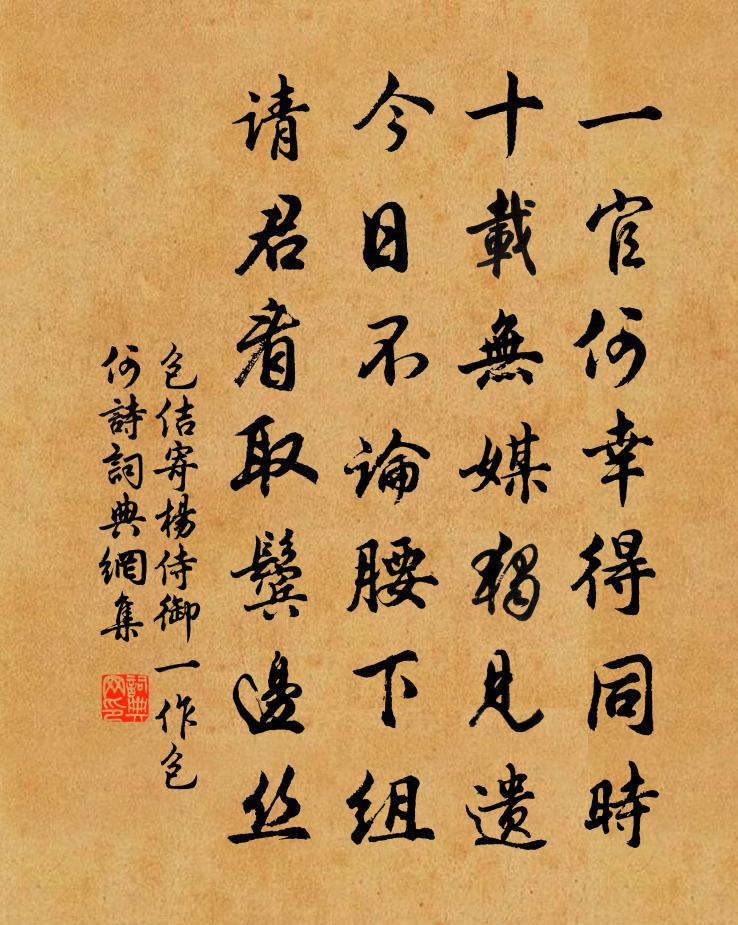 一官何幸得同時
十載無媒獨見遺
今日不論腰下組
请君看取鬓邊丝
包佶寄楊侍御一作包
何詩詞典網集
詞典网印